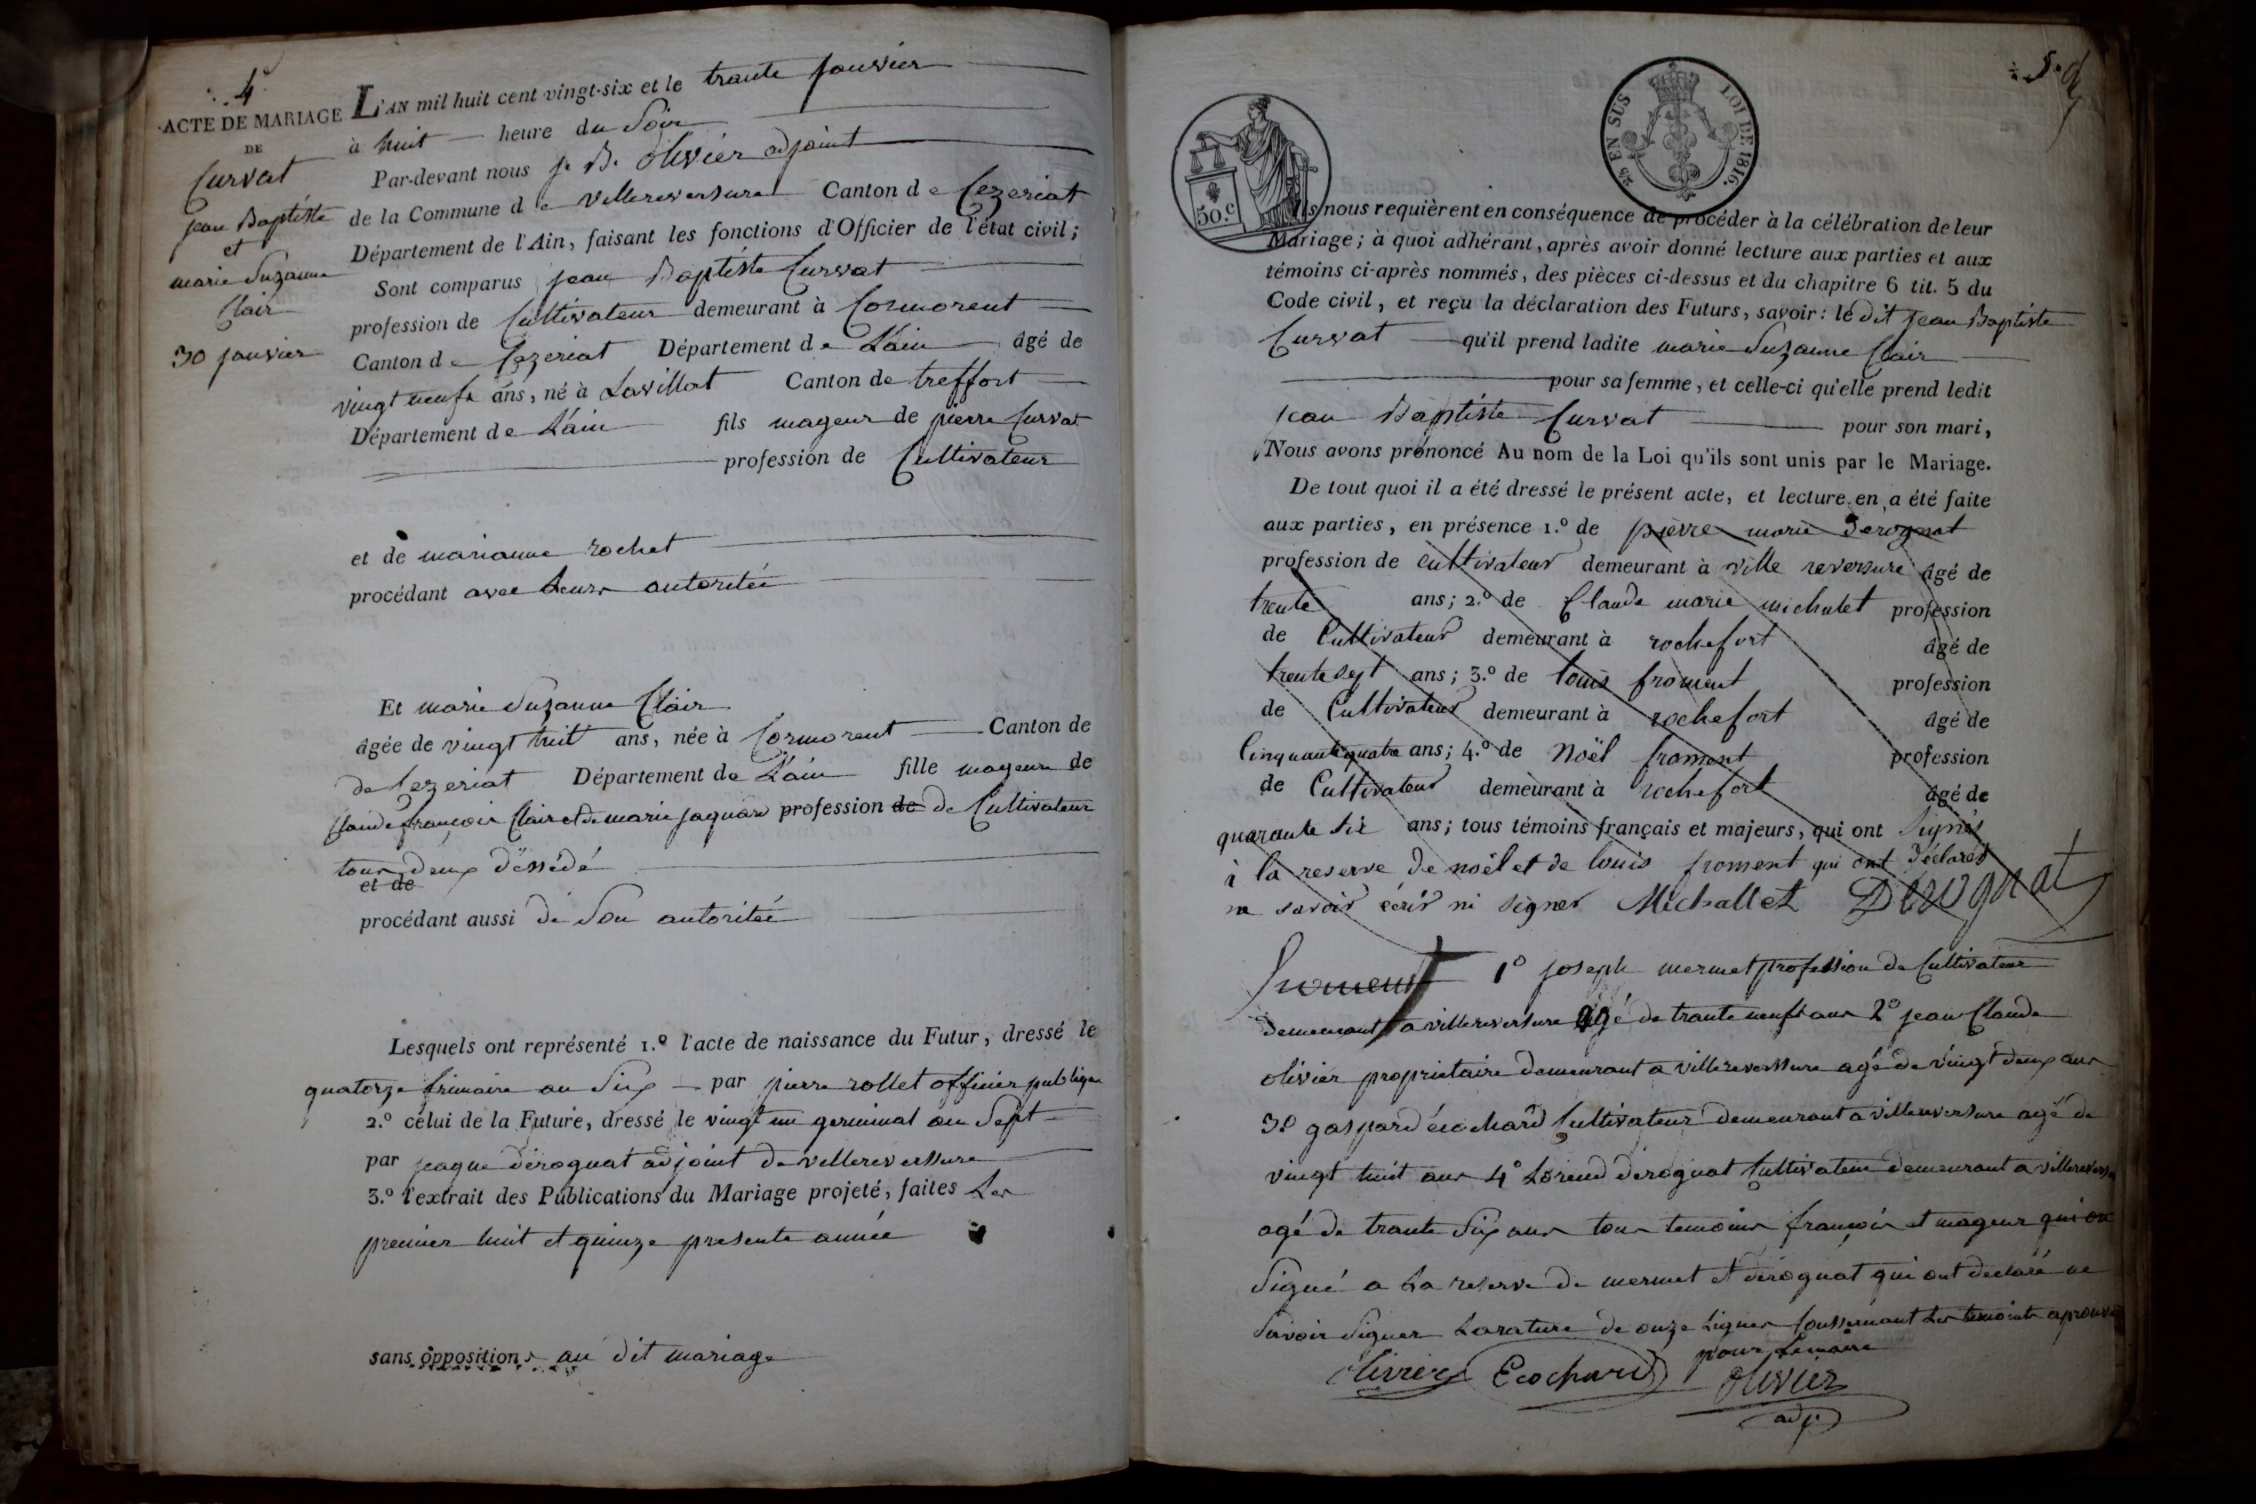 4e
ACTE DE MARIAGE
DE
Curvat
jean Baptiste
et
marie Suzanne
Clair
30 janvier
L'AN mil huit cent vingt-six et le trante janvier
à huit heure du Soir
Par-devant nous j. B. olivier adjoint
de la Commune de villereversure Canton de Cezeriat
Département de l'Ain, faisant les fonctions d'Officier de l'état civil;
Sont comparus jean Baptiste Curvat
profession de Cultivateur demeurant à Cormorent
Canton de Cezeriat Département de L'ain âgé de
vingt neufs ans, né à Lavillat Canton de treffort
Département de L'ain fils mageur de pierre Curvat
profession de Cultivateur
et de marianne rochet
procédant avec Leurs autoritée
Et marie Suzanne Clair
âgée de vingt huit ans, née à Cormorent Canton de
de Cezeriat Département de L'ain fille mageure de
Claude françois Clair et de marie jaquard profession de de Cultivateur
tous deux déssédé
et de
procédant aussi de Son autoritée
Lesquels ont représenté 1.º l'acte de naissance du Futur, dressé le
quatorze frimaire an Six par pierre rollet officier publique
2.º celui de la Future, dressé le vingt un germinal an Sept
par jaque dérognat adjoint de villereverssure
3.º l'extrait des Publications du Mariage projeté, faites Les
premier huit et quinze presente année
sans oppositions au dit mariage
5e
25 EN SUS LOI DE 1816.
50.c
Ils nous requièrent en conséquence de procéder à la célébration de leur
Mariage; à quoi adhérant, après avoir donné lecture aux parties et aux
témoins ci-après nommés, des pièces ci-dessus et du chapitre 6 tit. 5 du
Code civil, et reçu la déclaration des Futurs, savoir: le dit jean Baptiste
Curvat qu'il prend ladite marie Suzanne Clair
pour sa femme, et celle-ci qu'elle prend ledit
jean Baptiste Curvat pour son mari,
Nous avons prononcé Au nom de la Loi qu'ils sont unis par le Mariage.
De tout quoi il a été dressé le présent acte, et lecture en a été faite
aux parties, en présence 1.º de pierre marie derognat
profession de cultivateur demeurant à ville reversure âgé de
trente ans; 2.º de Claude marie michalet profession
de Cultivateur demeurant à rochefort âgé de
trente sept ans; 3.º de louis froment profession
de Cultivateur demeurant à rochefort âgé de
Cinquante quatre ans; 4.º de Noël froment profession
de Cultivateur demeurant à rochefort âgé de
quarante six ans; tous témoins français et majeurs, qui ont signés
à la reserve de noël et de louis froment qui ont déclarés
ne savoir écrir ni signer Michallet Derognat
froment 1º joseph mermet profession de Cultivateur
demeurant a villereversure âgé de trante neufs ans 2º jean Claude
olivier proprietaire demeurant a villereverssure agé de vingt deux ans
3º gaspard écochard Cultivateur demeurant a villereversure agé de
vingt huit ans 4º Lorend dérognat Cultivateur demeurant a villereversu
agé de trante Six ans tous temoins françois et mageur qui on
Signé a La reserve de mermet et dérognat qui ont declaré ne
Savoir Signer Larature de onze Lignes Conssernant Les temoints aprouvé
pour Lemaire
olivier Ecochard olivier
adj.